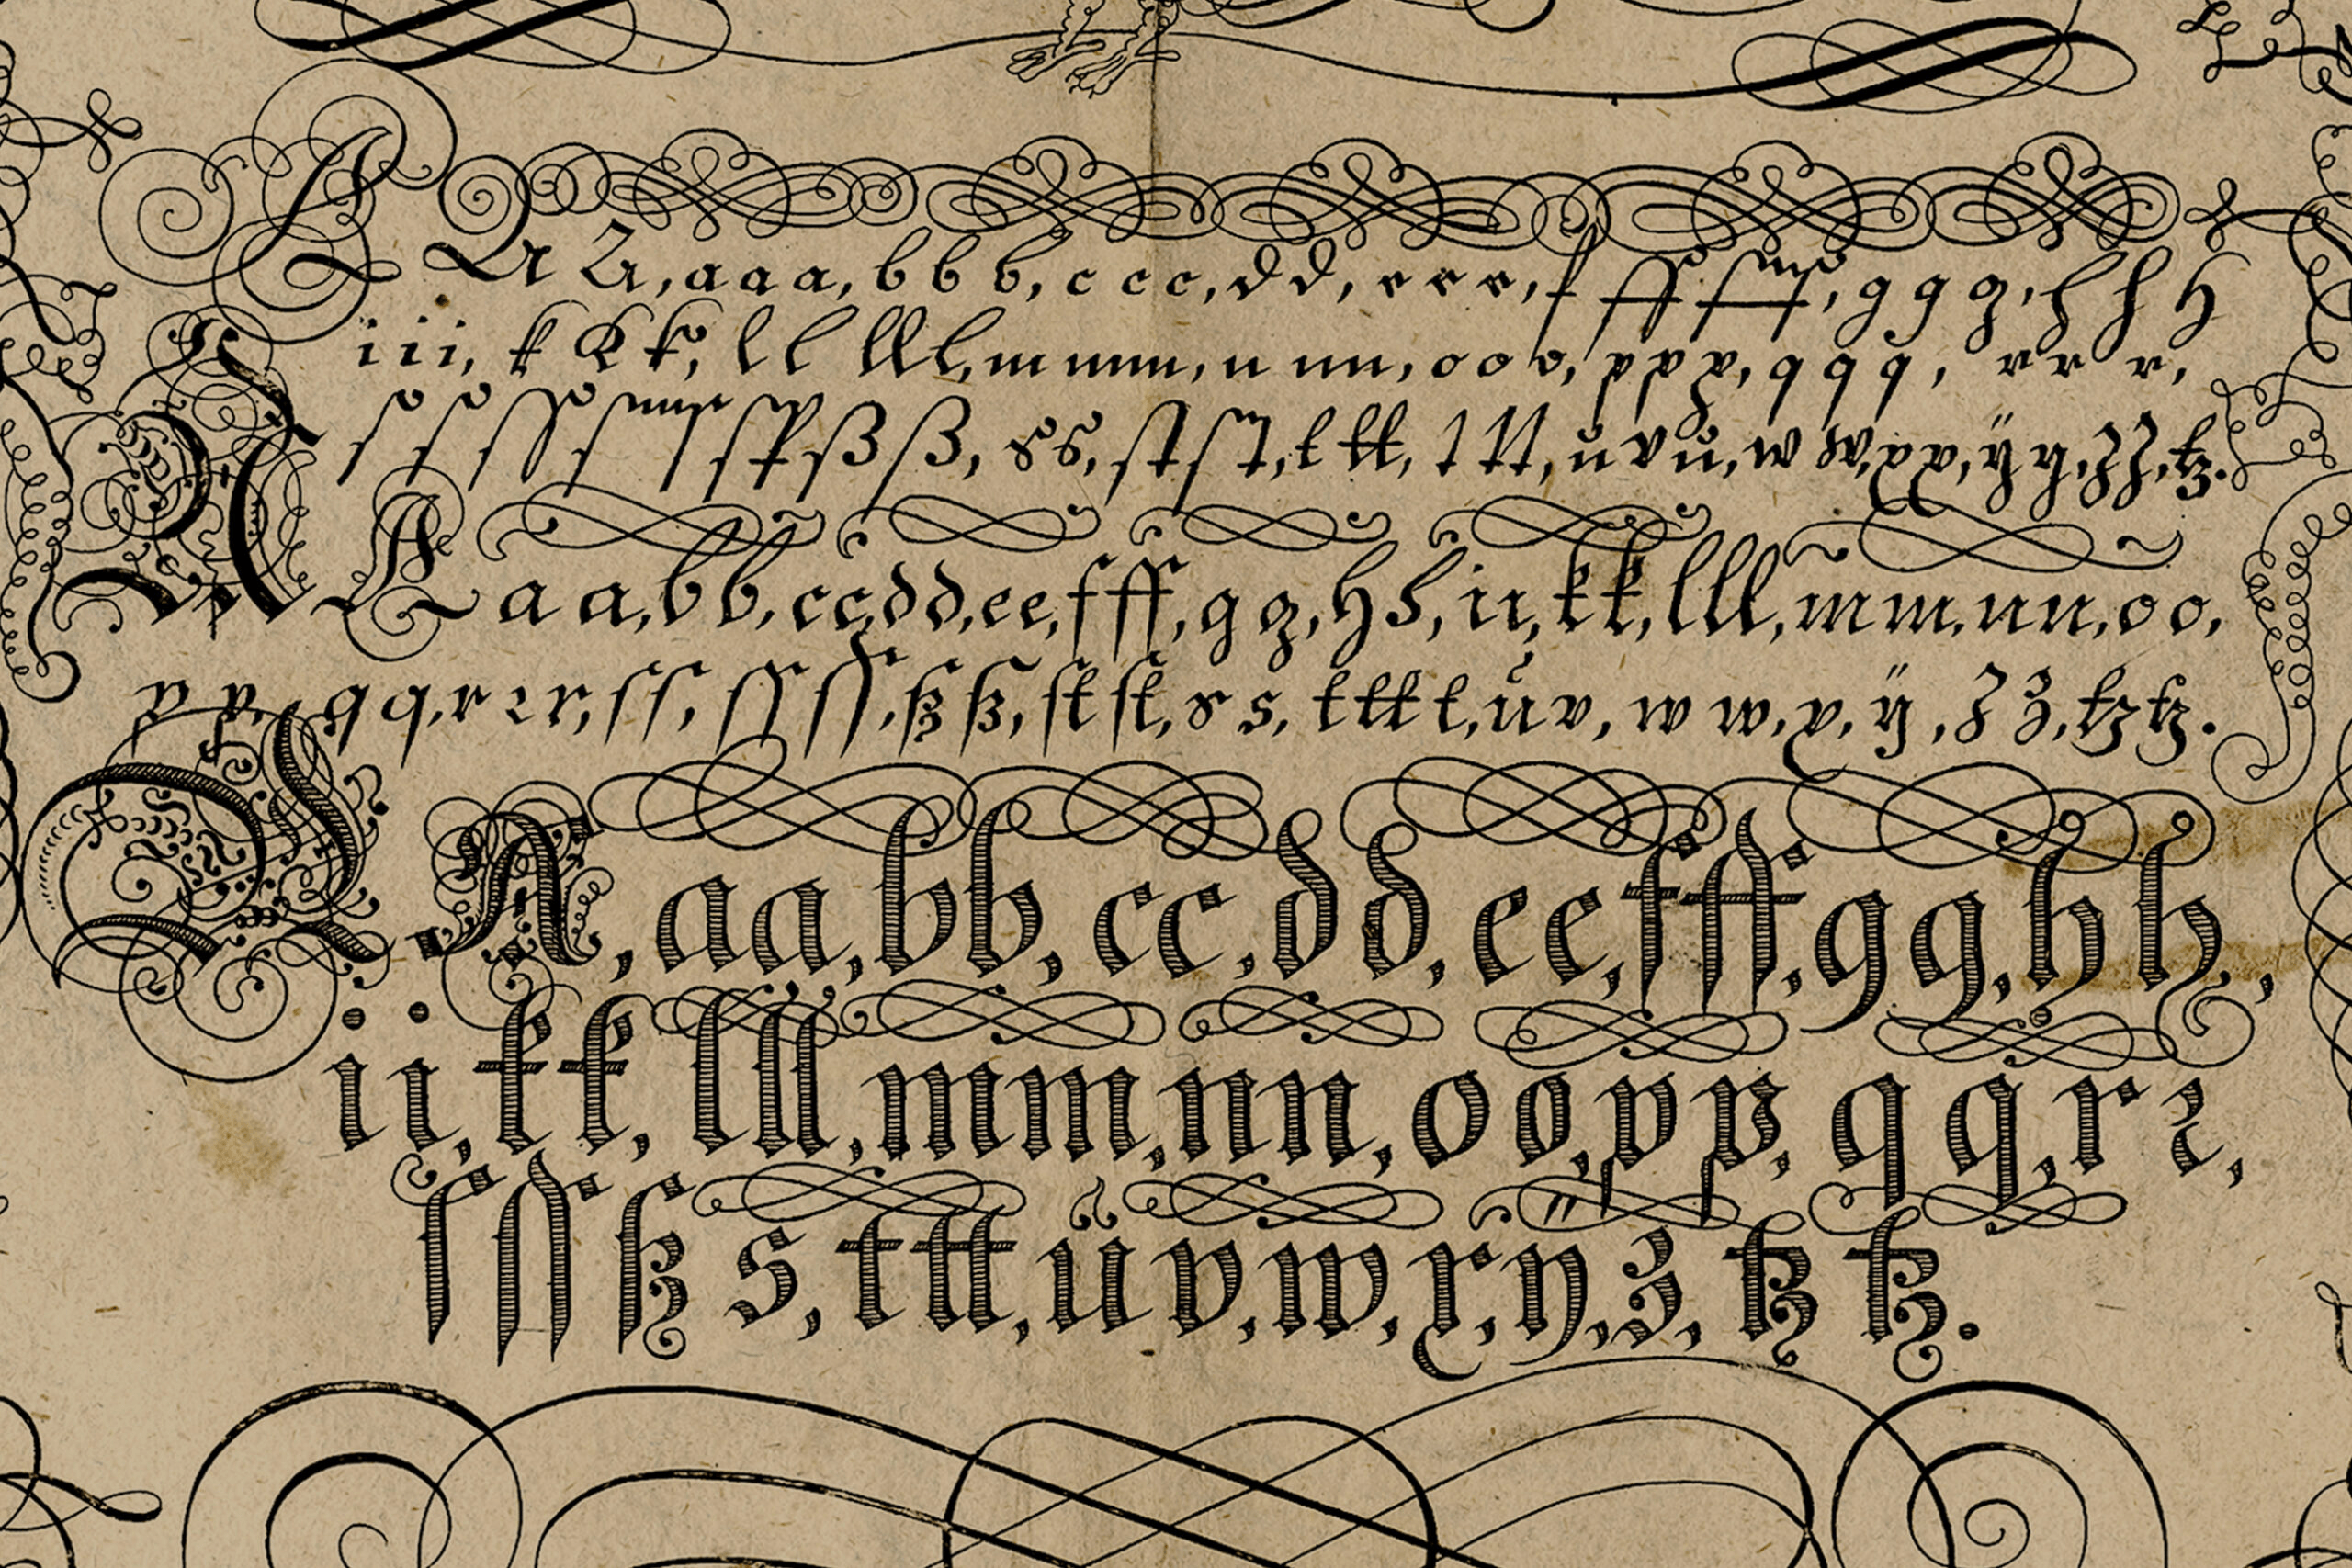 A A A, a a a, b b b, c c c, d d, e e e, f ff fff, g g g, h h h
i i i, k k k, l l lll, m mm, n nn, o o o, p p p, q q q, r r r,
ſ ſ ſſ ſ ſ ſſ ß ß, s s, ſt ſt, t tt, t tt, u v u, w w, x x, ÿ y, z z, tz.
A a a, b b, c c, d d, e e, f ff, g g, h h, i i, k k, l ll, m m, n n, o o,
p p, q q, r r r, ſ ſ, ſſ ſſ, ß ß, ſt ſt, s s, t tt t, u v, w w, x, ÿ, z z, tz tz.
A, a a, b b, c c, d d, e e, f ff, g g, h h,
i i, k k, l ll, m m, n n, o o, p p, q q, r r,
ſ ſſ ß s, t tt, ü v, w, x, ÿ, z, tz tz.